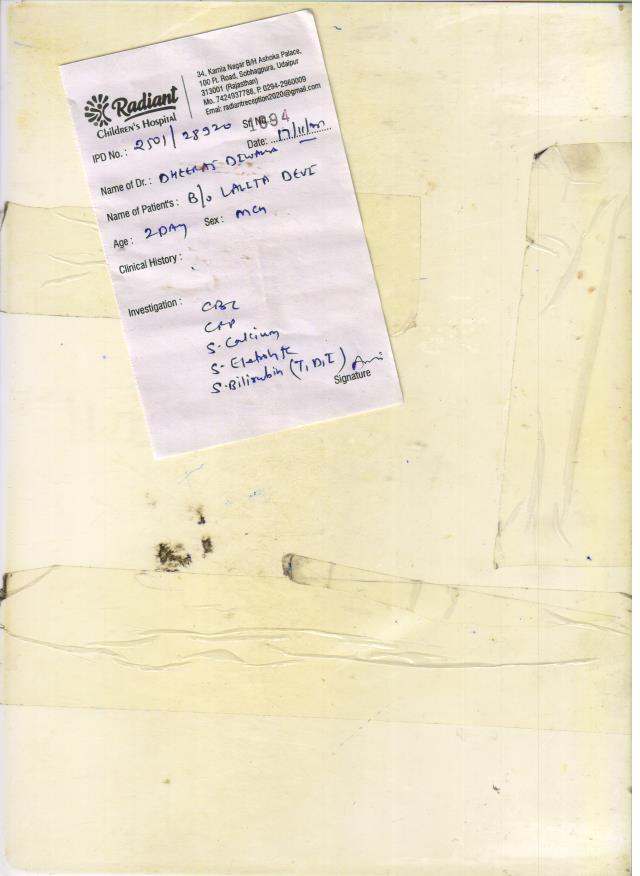 Radiant
Children's Hospital
34, Kamla Nagar B/H Ashoka Palace,
100 Ft. Road, Sobhagpura, Udaipur
313001 (Rajasthan)
Mo. 7424937788, P. 0294-2960009
Email: radiantreception2020@gmail.com
IPD No. : 2501/28920 Sr. No. 1694
Date: 17/11/
Name of Dr. : DHEERAJ DIWAKAR
Name of Patient's : B/o LALITA DEVI
Age : 2DAY Sex : MCH
Clinical History :
Investigation : CBC
CRP
S-Calcium
S-Eletrolyte
S-Bilirubin (T, D, I)
Signature